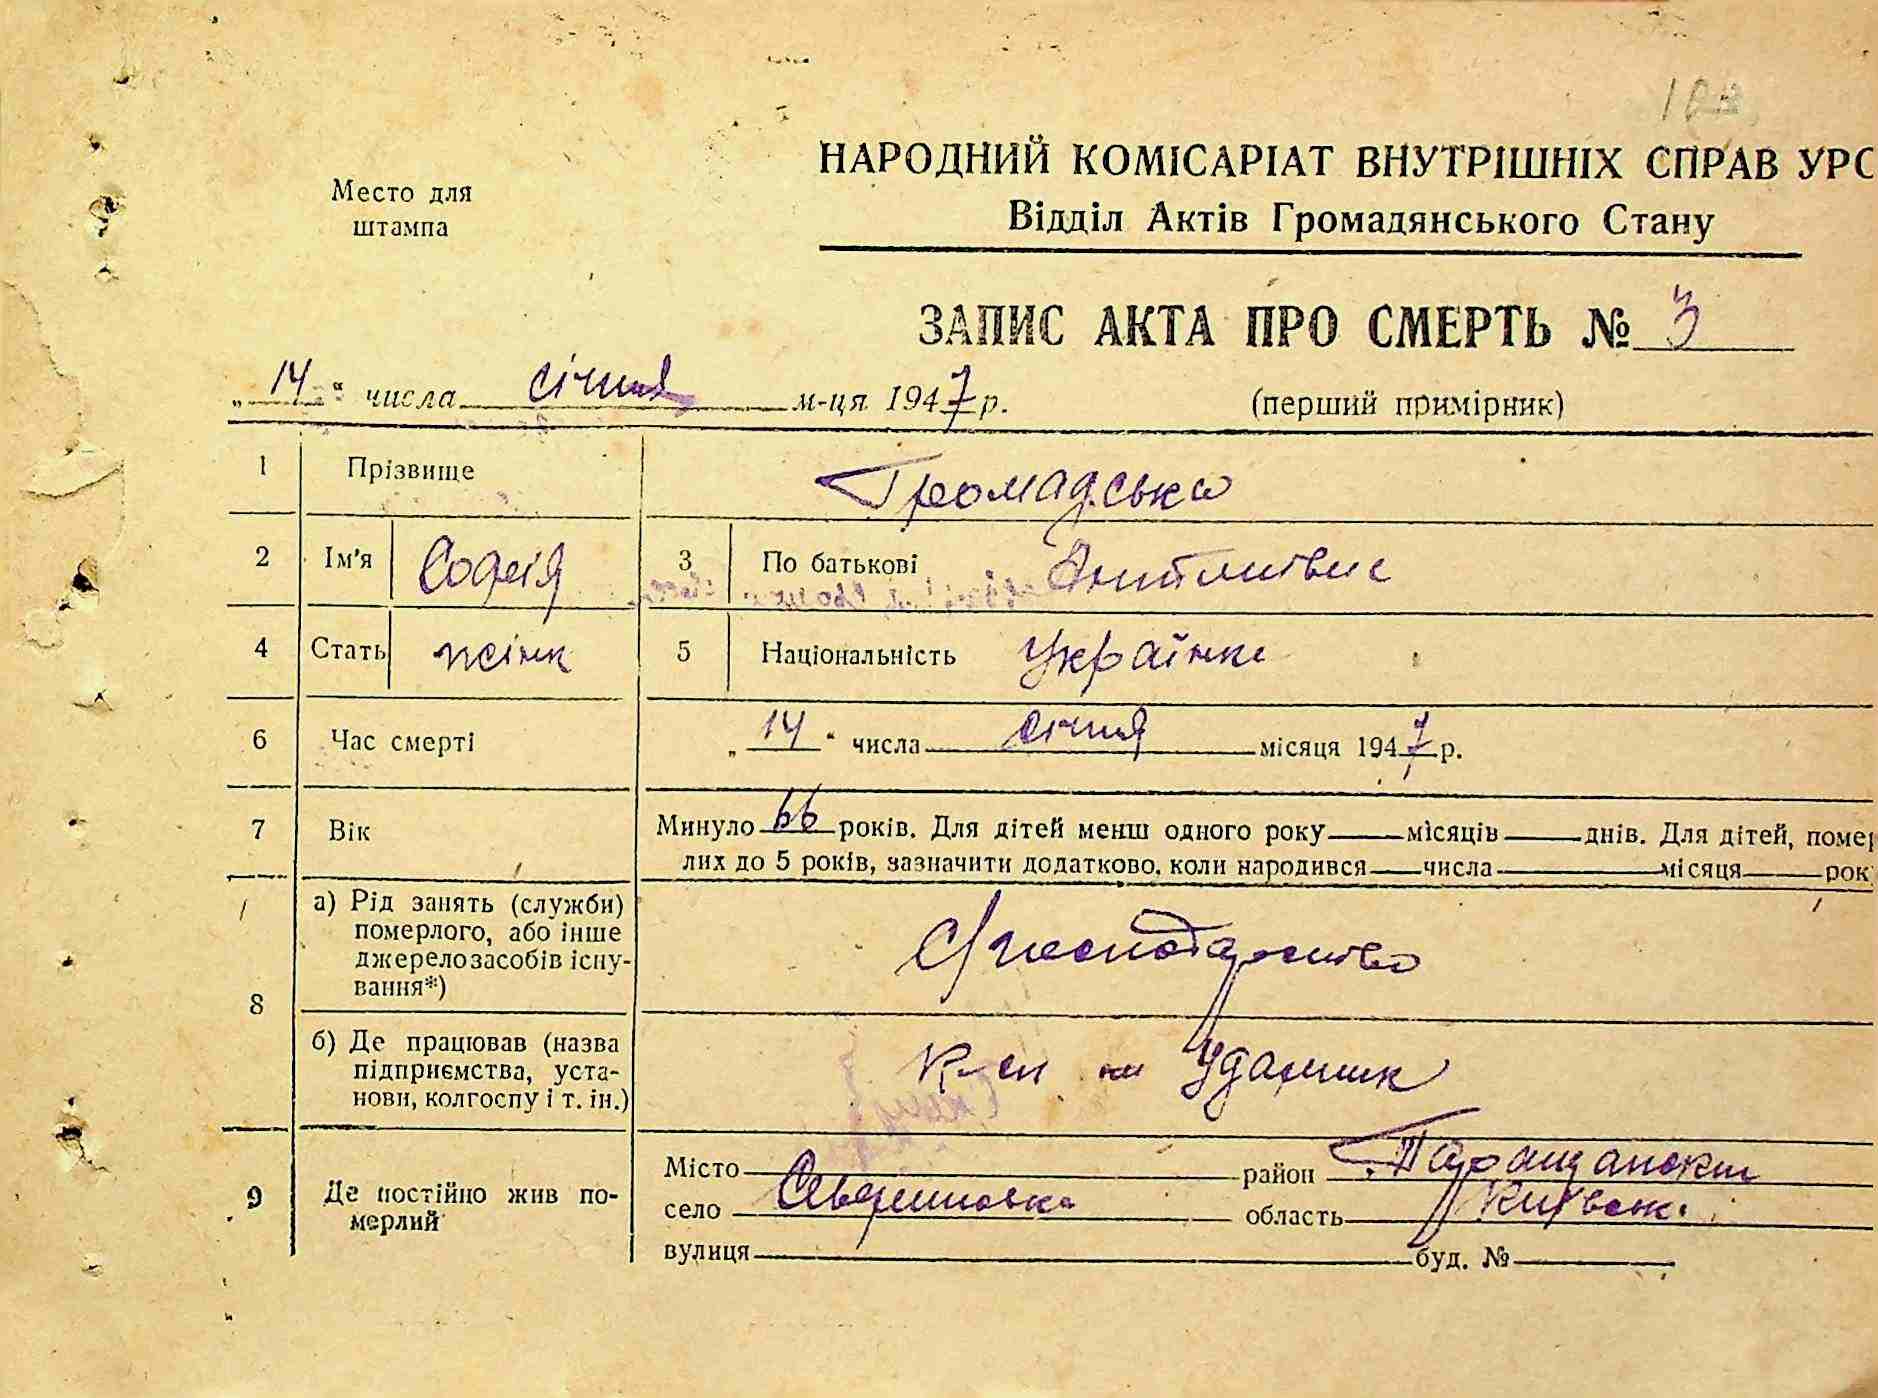 НАРОДНИЙ КОМІСАРІАТ ВНУТРІШНІХ СПРАВ УРС
Место для штампа
Відділ Актів Громадянського Стану
ЗАПИС АКТА ПРО СМЕРТЬ № 3
„14“ числа січня м-ця 1947 р.
(перший примірник)
1 Прізвище Громадська
2 Ім'я Софія 3 По батькові
4 Стать жінк 5 Національність Українка
6 Час смерті „14“ числа січня місяця 1947 р.
7 Вік Минуло 66 років. Для дітей менш одного року місяців днів. Для дітей, помер
лих до 5 років, зазначити додатково, коли народився числа місяця рок
8 а) Рід занять (служби)
померлого, або інше
джерело засобів існу-
вання*)
С/господарство
б) Де працював (назва
підприємства, уста-
нови, колгоспу і т. ін.)
Ударник
9 Де постійно жив по-
мерлий
Місто район Таращанский
село Севериновка область Київськ.
вулиця буд. №